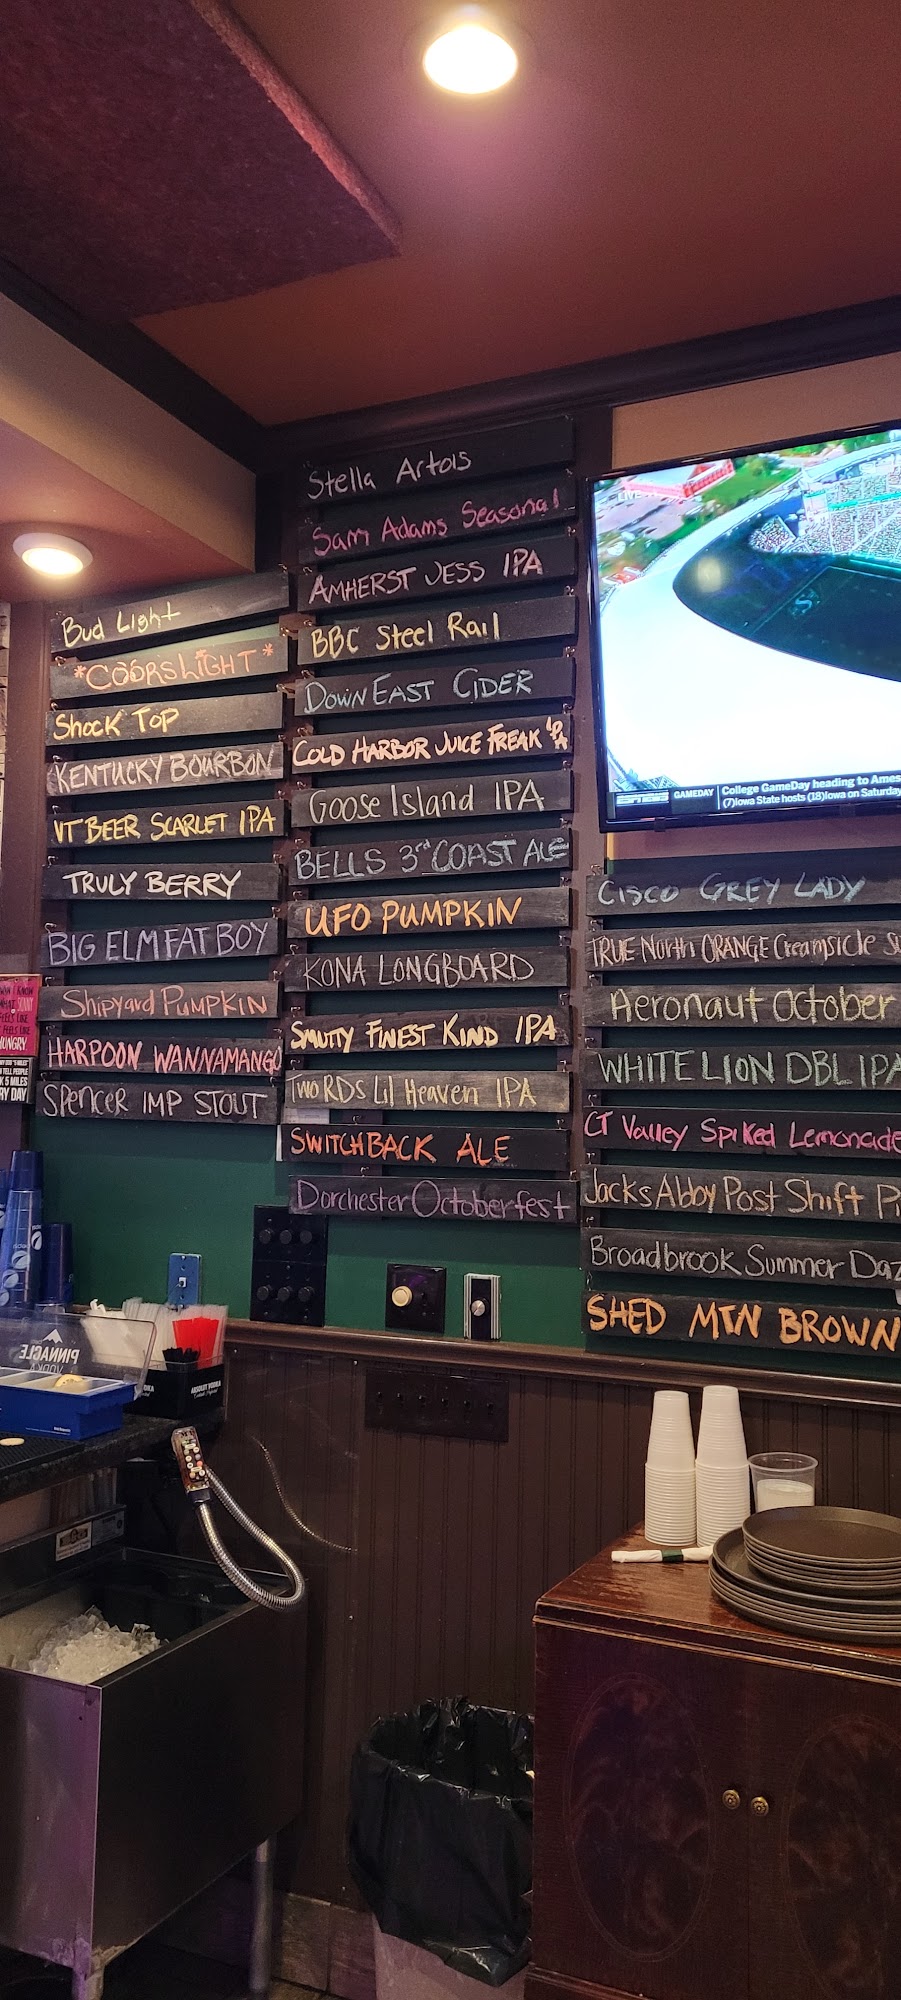 Bud Light
*COORS LIGHT*
Shock Top
KENTUCKY BOURBON
VT BEER SCARLET IPA
TRULY BERRY
BIG ELM FAT BOY
Shipyard Pumpkin
HARPOON WANNAMANGO
SPENCER IMP STOUT
Stella Artois
Sam Adams Seasonal
AMHERST JESS IPA
BBC Steel Rail
DOWN EAST CIDER
COLD HARBOR JUICE FREAK IPA
Goose Island IPA
BELLS 3rd COAST ALE
UFO PUMPKIN
KONA LONGBOARD
SMUTTY FINEST KIND IPA
Two RDs Lil Heaven IPA
SWITCHBACK ALE
Dorchester Octoberfest
LIVE
GAMEDAY
College GameDay heading to Ames
(7)Iowa State hosts (18)Iowa on Saturday
CISCO GREY LADY
TRUE North ORANGE Creamsicle
Aeronaut October
WHITE LION DBL IPA
CT Valley Spiked Lemonade
Jacks Abby Post Shift
Broadbrook Summer
SHED MTN BROWN
FEELS LIKE
HUNGRY
TELL PEOPLE
5 MILES
PINNACLE
VODKA
ABSOLUT VODKA